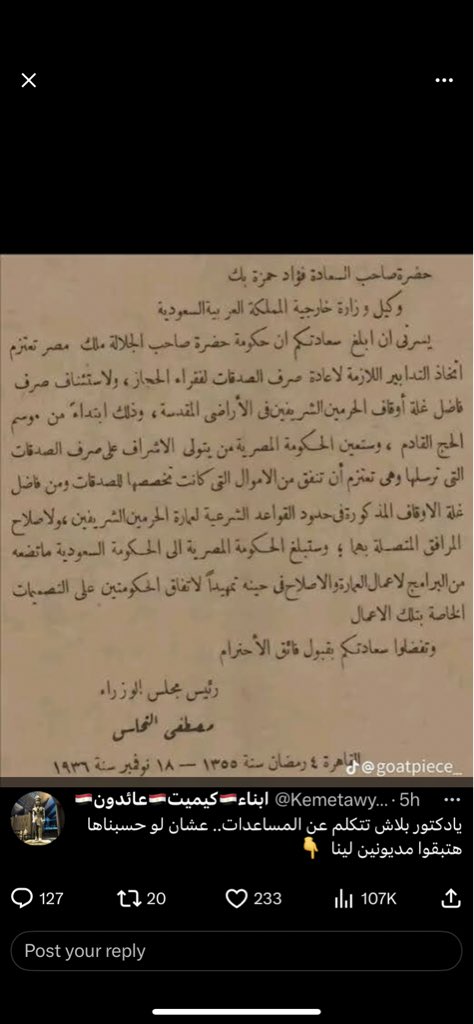 حضرة صاحب السعادة فؤاد حمزة بك
وكيل وزارة خارجية المملكة العربية السعودية
يسرنى ان ابلغ سعادتكم ان حكومة حضرة صاحب الجلالة ملك مصر تعتزم
اتخاذ التدابير اللازمة لاعادة صرف الصدقات لفقراء الحجاز ، ولاستئناف صرف
فاضل غلة أوقاف الحرمين الشريفين فى الأراضى المقدسة ، وذلك ابتداءً من موسم
الحج القادم ، وستعين الحكومة المصرية من يتولى الاشراف على صرف الصدقات
التى ترسلها وهى تعتزم أن تنفق من الاموال التى كانت تخصصها للصدقات ومن فاضل
غلة الاوقاف المذكورة فى حدود القواعد الشرعية لعمارة الحرمين الشريفين ،ولاصلاح
المرافق المتصلة بهما ؛ وستبلغ الحكومة المصرية الى الحكومة السعودية ماتضعه
من البرامج لاعمال العمارة والاصلاح فى حينه تمهيداً لاتفاق الحكومتين على التصميمات
الخاصة بتلك الاعمال
وتفضلوا سعادتكم بقبول فائق الأحترام
رئيس مجلس الوزراء
مصطفى النحاس
القاهرة ٤ رمضان سنة ١٣٥٥ — ١٨ نوفمبر سنة ١٩٣٦
@goatpiece_
ابناء🇪🇬كيميت🇪🇬عائدون🇪🇬 @Kemetawy... · 5h
يادكتور بلاش تتكلم عن المساعدات.. عشان لو حسبناها
هتبقوا مديونين لينا 👇
127 20 233 107K
Post your reply